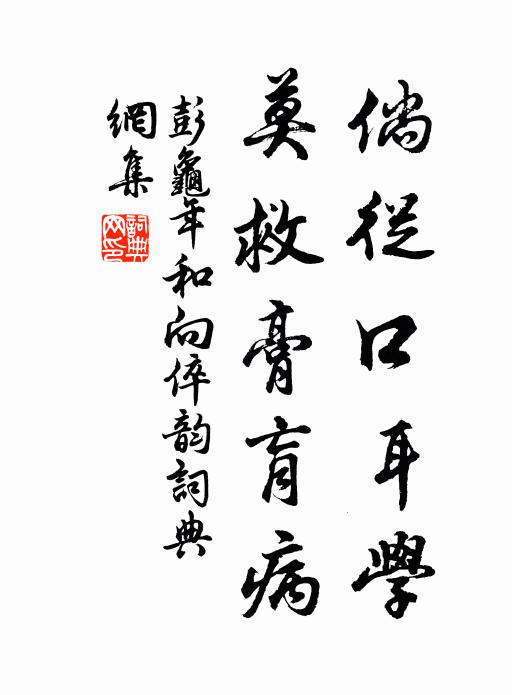 倘從口耳學
莫救膏肓病
彭龜年和向倅韵詞典
網集
詞典網印